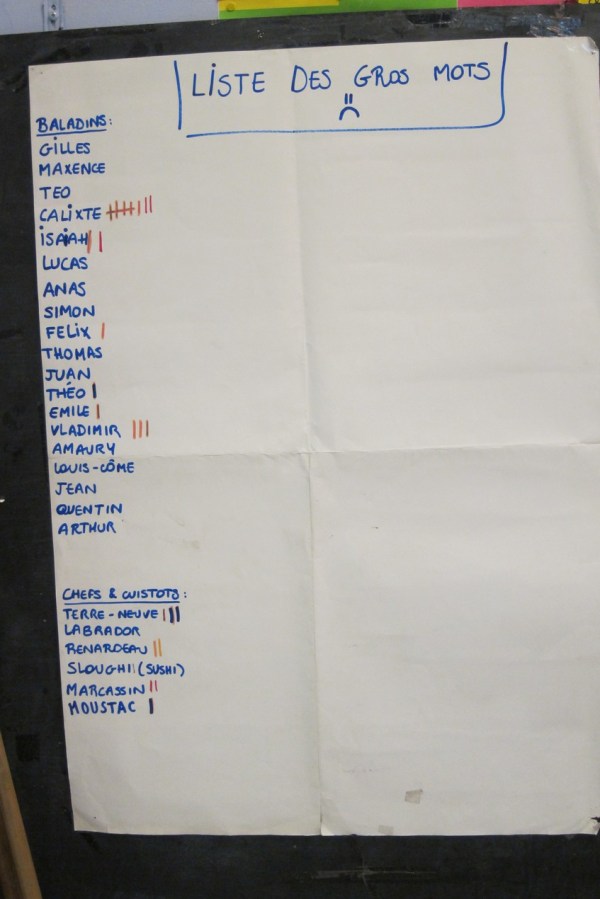 LISTE DES GROS MOTS
BALADINS:
GILLES
MAXENCE
TEO
CALIXTE
ISAIAH
LUCAS
ANAS
SIMON
FELIX
THOMAS
JUAN
THÉO
EMILE
VLADIMIR
AMAURY
LOUIS-CÔME
JEAN
QUENTIN
ARTHUR
CHEFS & CUISTOTS:
TERRE-NEUVE
LABRADOR
RENARDEAU
SLOUGHI (SUSHI)
MARCASSIN
MOUSTAC